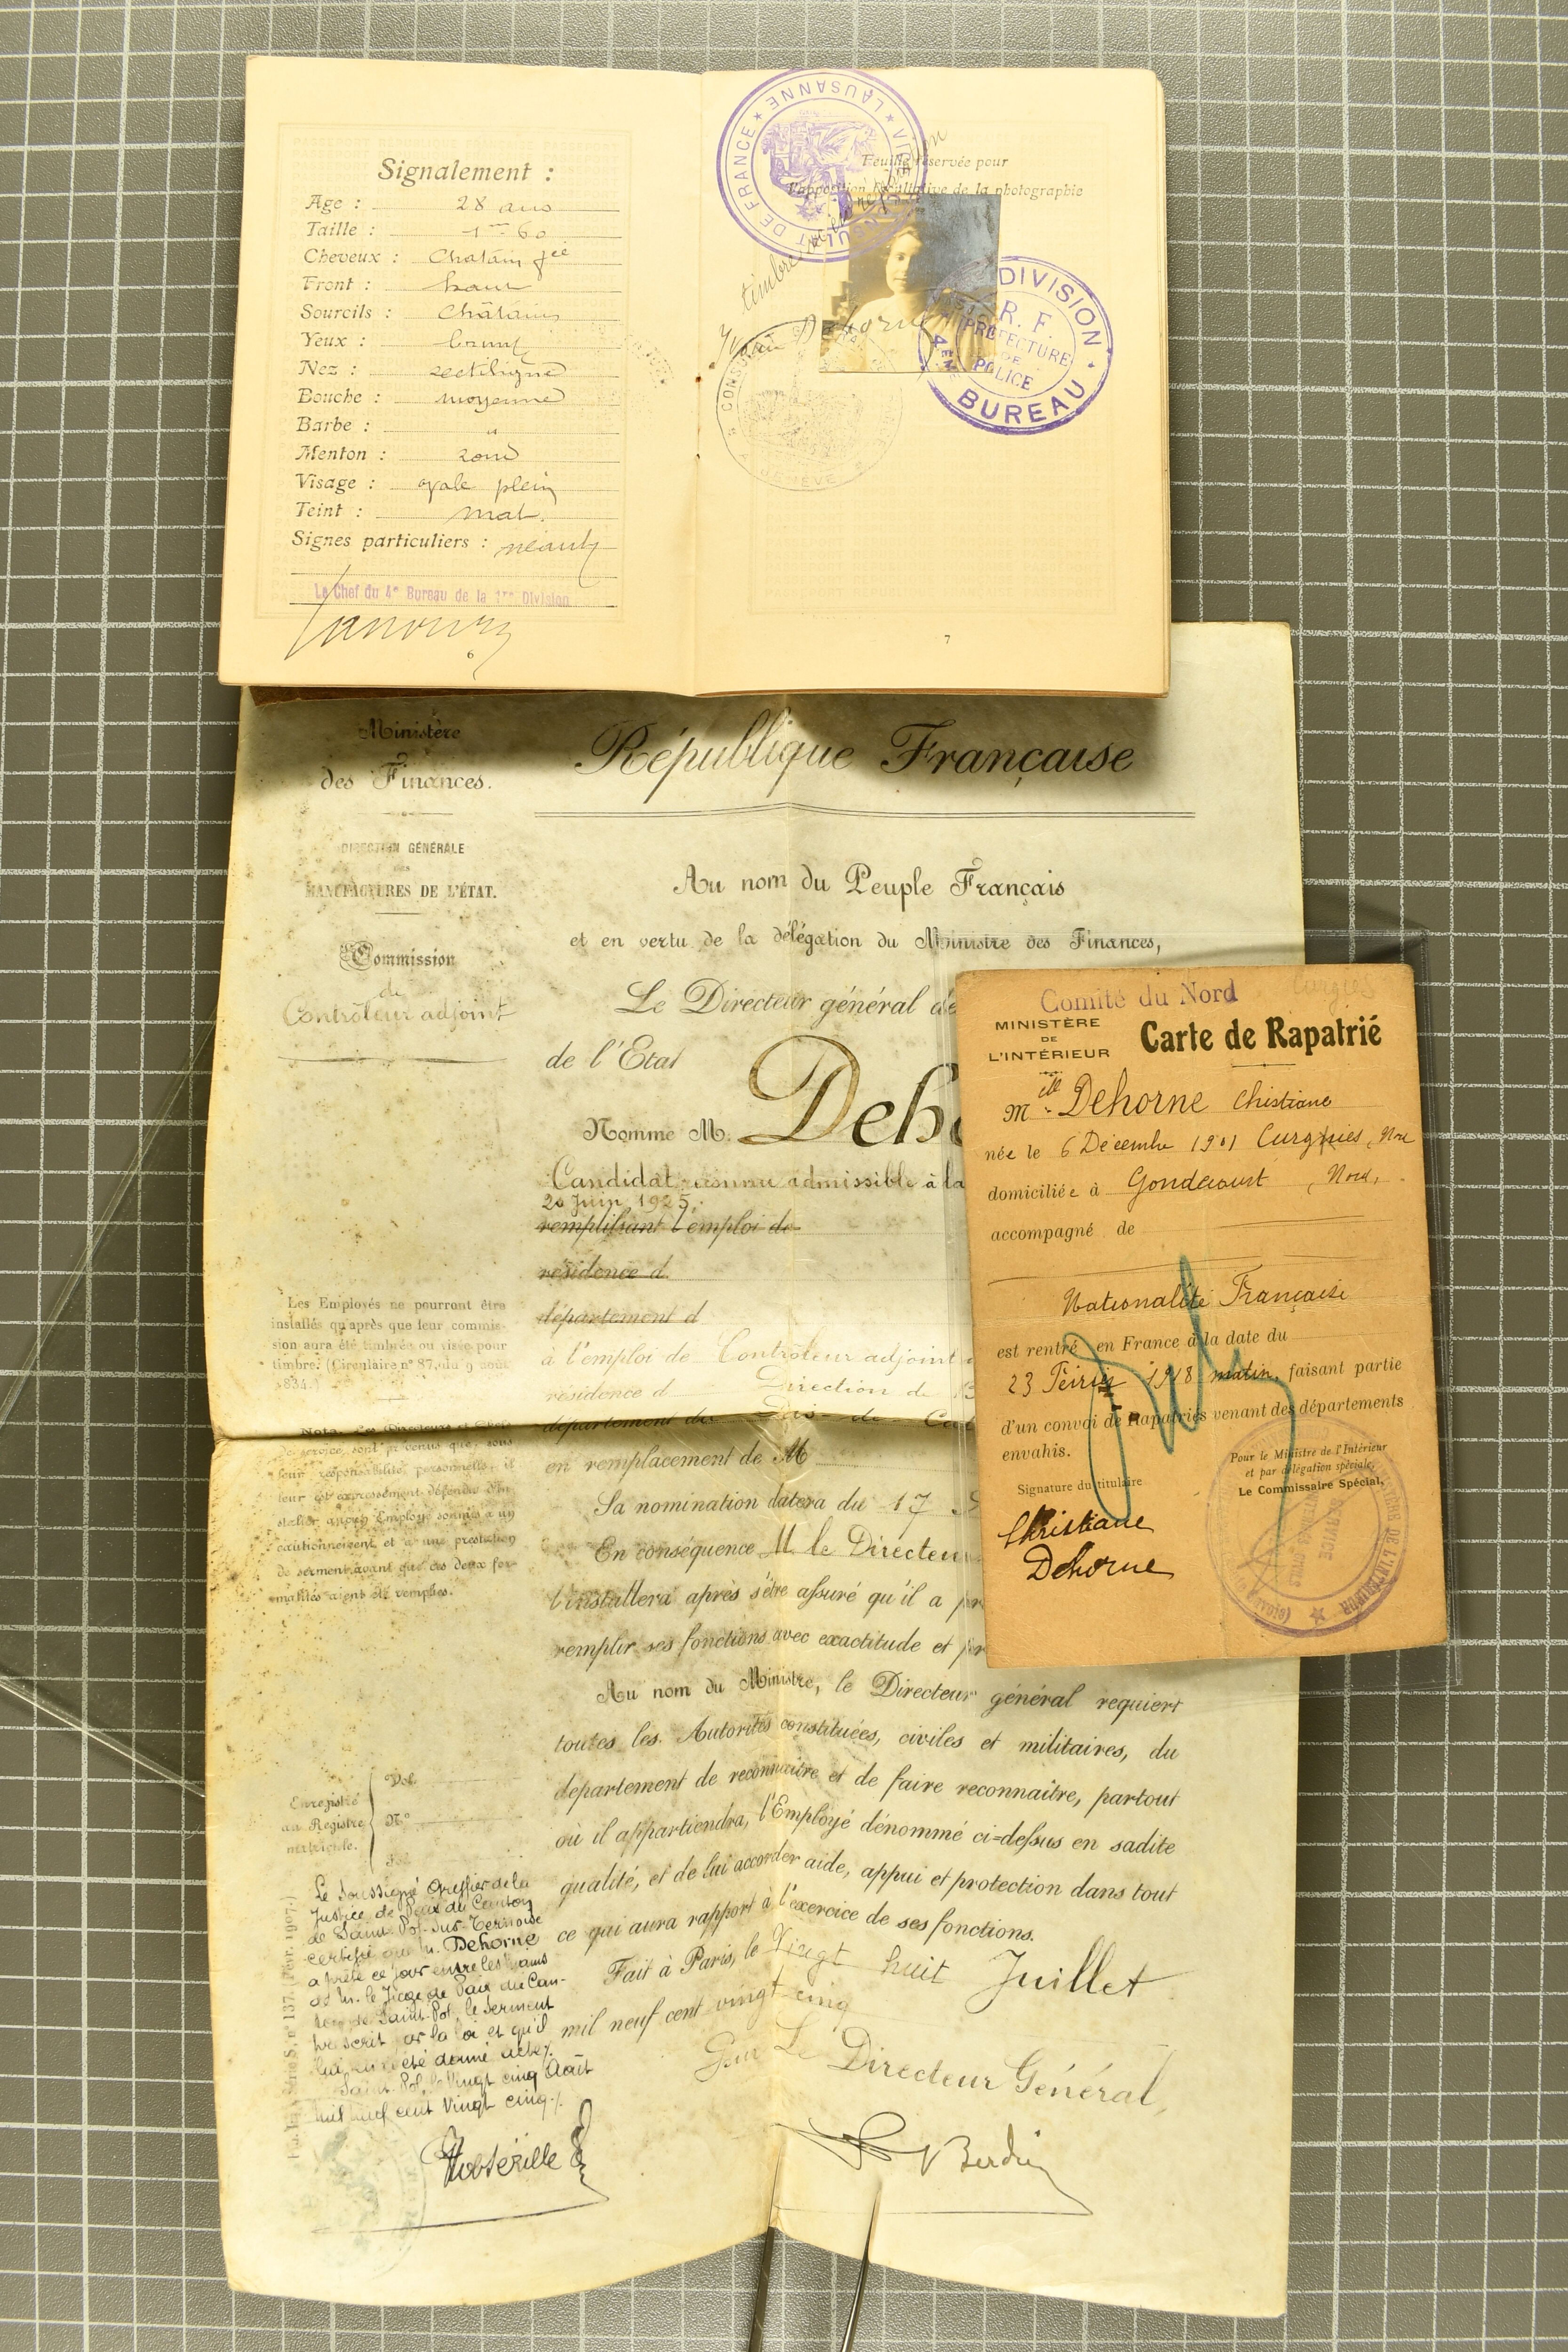 Signalement :
Age : 28 ans
Taille : 1m 60
Cheveux : Chatain
Front : haut
Sourcils : Châtains
Yeux : bruns
Nez : rectiligne
Bouche : moyenne
Barbe : "
Menton : rond
Visage : ovale plein
Teint : mat.
Signes particuliers : néant
Le Chef du 4e Bureau de la 1re Division
6
VICE CONSULAT DE FRANCE ★ LAUSANNE ★
Feuille réservée pour
l'apposition facultative de la photographie
timbre
Dehorne
CONSULAT
GENÈVE
DIVISION
R. F.
PRÉFECTURE
DE
POLICE
4EME BUREAU
7
Ministère
des Finances.
DIRECTION GÉNÉRALE
DES
MANUFACTURES DE L'ÉTAT.
Commission
de
Contrôleur adjoint
Les Employés ne pourront être
installés qu'après que leur commis-
sion aura été timbrée ou visée pour
timbre. (Circulaire n° 87, du 9 août
1834.)
Nota. Les Directeurs et Chefs
de service sont prévenus que, sous
leur responsabilité personnelle, il
leur est expressément défendu d'in-
staller aucun Employé soumis à un
cautionnement et à une prestation
de serment avant que ces deux for-
malités aient été remplies.
Enregistré
au Registre
matricule.
Vol.
N°
Fol.
Le Soussigné Greffier de la
Justice de Paix du Canton
de Saint-Pol-sur-Ternoise
certifie que M. Dehorne
a prêté ce jour entre les mains
de M. le Juge de Paix du Can-
ton de Saint-Pol, le serment
prescrit par la loi et qu'il
lui en a été donné acte.
Saint-Pol, le Vingt cinq Août
mil neuf cent Vingt cinq.
République Française
Au nom du Peuple Français
et en vertu de la délégation du Ministre des Finances,
Le Directeur général de
de l'Etat
Nomme M. Deho
Candidat reconnu admissible à la
20 Juin 1925.
remplissant l'emploi de
résidence d
département d
à l'emploi de Contrôleur adjoint
résidence d Direction de
département du Pas-de-Ca
en remplacement de M
Sa nomination datera du 17
En conséquence M. le Directeu
l'installera après s'être assuré qu'il a pr
remplir ses fonctions avec exactitude et pr
Au nom du Ministre, le Directeur général requiert
toutes les Autorités constituées, civiles et militaires, du
département de reconnaître et de faire reconnaître, partout
où il appartiendra, l'Employé dénommé ci-dessus en sadite
qualité, et de lui accorder aide, appui et protection dans tout
ce qui aura rapport à l'exercice de ses fonctions.
Fait à Paris, le Vingt huit Juillet
mil neuf cent vingt cinq
Le Directeur Général,
Comité du Nord
MINISTÈRE
DE
L'INTÉRIEUR
Carte de Rapatrié
Mlle Dehorne Christiane
née le 6 Décembre 1901 Curgies, Nord
domiciliée à Gondecourt, Nord,
accompagné de
Nationalité Française
est rentré en France à la date du
23 Février 1918 matin, faisant partie
d'un convoi de Rapatriés venant des départements
envahis.
Signature du titulaire
Pour le Ministre de l'Intérieur
et par délégation spéciale,
Le Commissaire Spécial,
Christiane
Dehorne